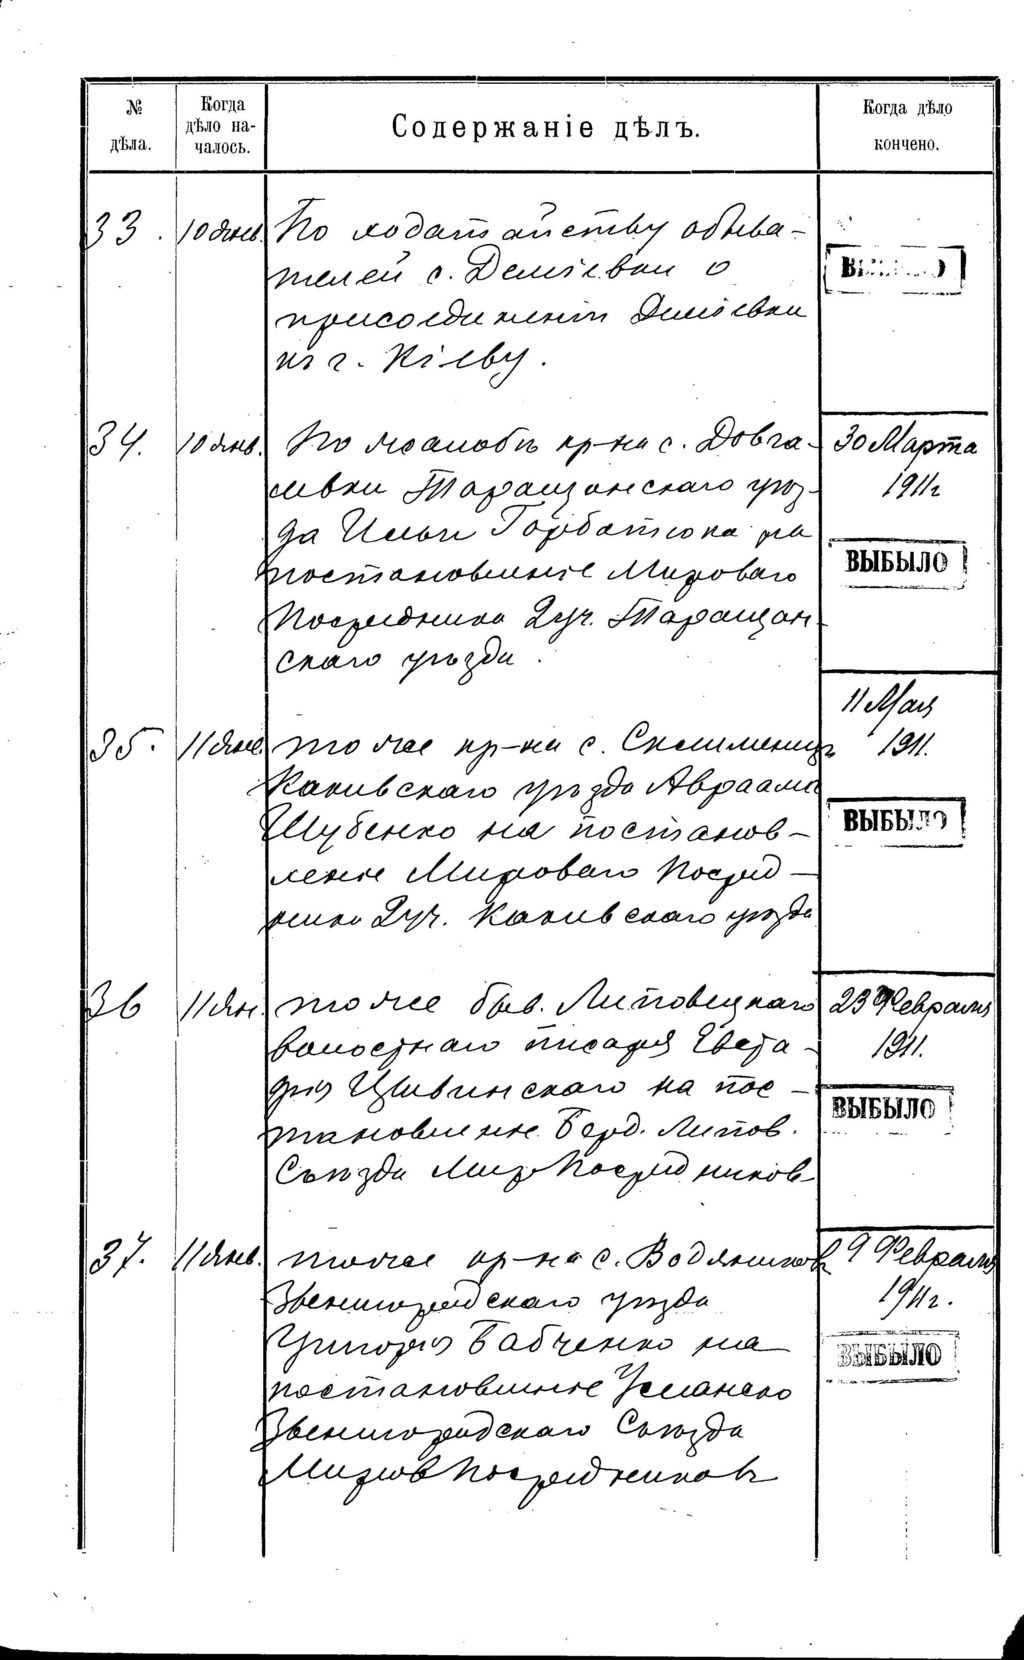 № дѣла.
Когда дѣло на-
чалось.
Содержаніе дѣлъ.
Когда дѣло
кончено.
33. 10 Янв. По ходатайству обыва-
телей с. Деміевки о
присоединеніи Деміевки
къ г. Кіеву.
ВЫБЫЛО
34. 10 Янв. По жалобѣ кр-на с. Довга-
левки Таращанскаго уѣз-
да Ильи Горбатюка на
постановленіе Мирового
Посредника 2 уч. Таращан-
скаго уѣзда.
30 Марта
1911 г
ВЫБЫЛО
35. 11 Янв. тоже кр-на с.
Каневскаго уѣзда Авраама
Шубенко на постанов-
леніе Мирового Посред-
ника 2 уч. Каневскаго уѣзда
11 Мая
1911.
ВЫБЫЛО
36 11 Ян. тоже быв. Липовецкаго
волостнаго писаря Евста-
фія Цывинскаго на пос-
тановленіе Берд. Липов.
Съѣзда Мир Посредниковъ
23 Февраля
1911.
ВЫБЫЛО
37. 11 Янв. тоже кр-на с. Водяниковъ
Звенигородскаго уѣзда
Григорія Бабченко на
постановленіе Уманско
Звенигородскаго Съѣзда
Миров Посредниковъ
9 Февраля
1911 г.
ВЫБЫЛО